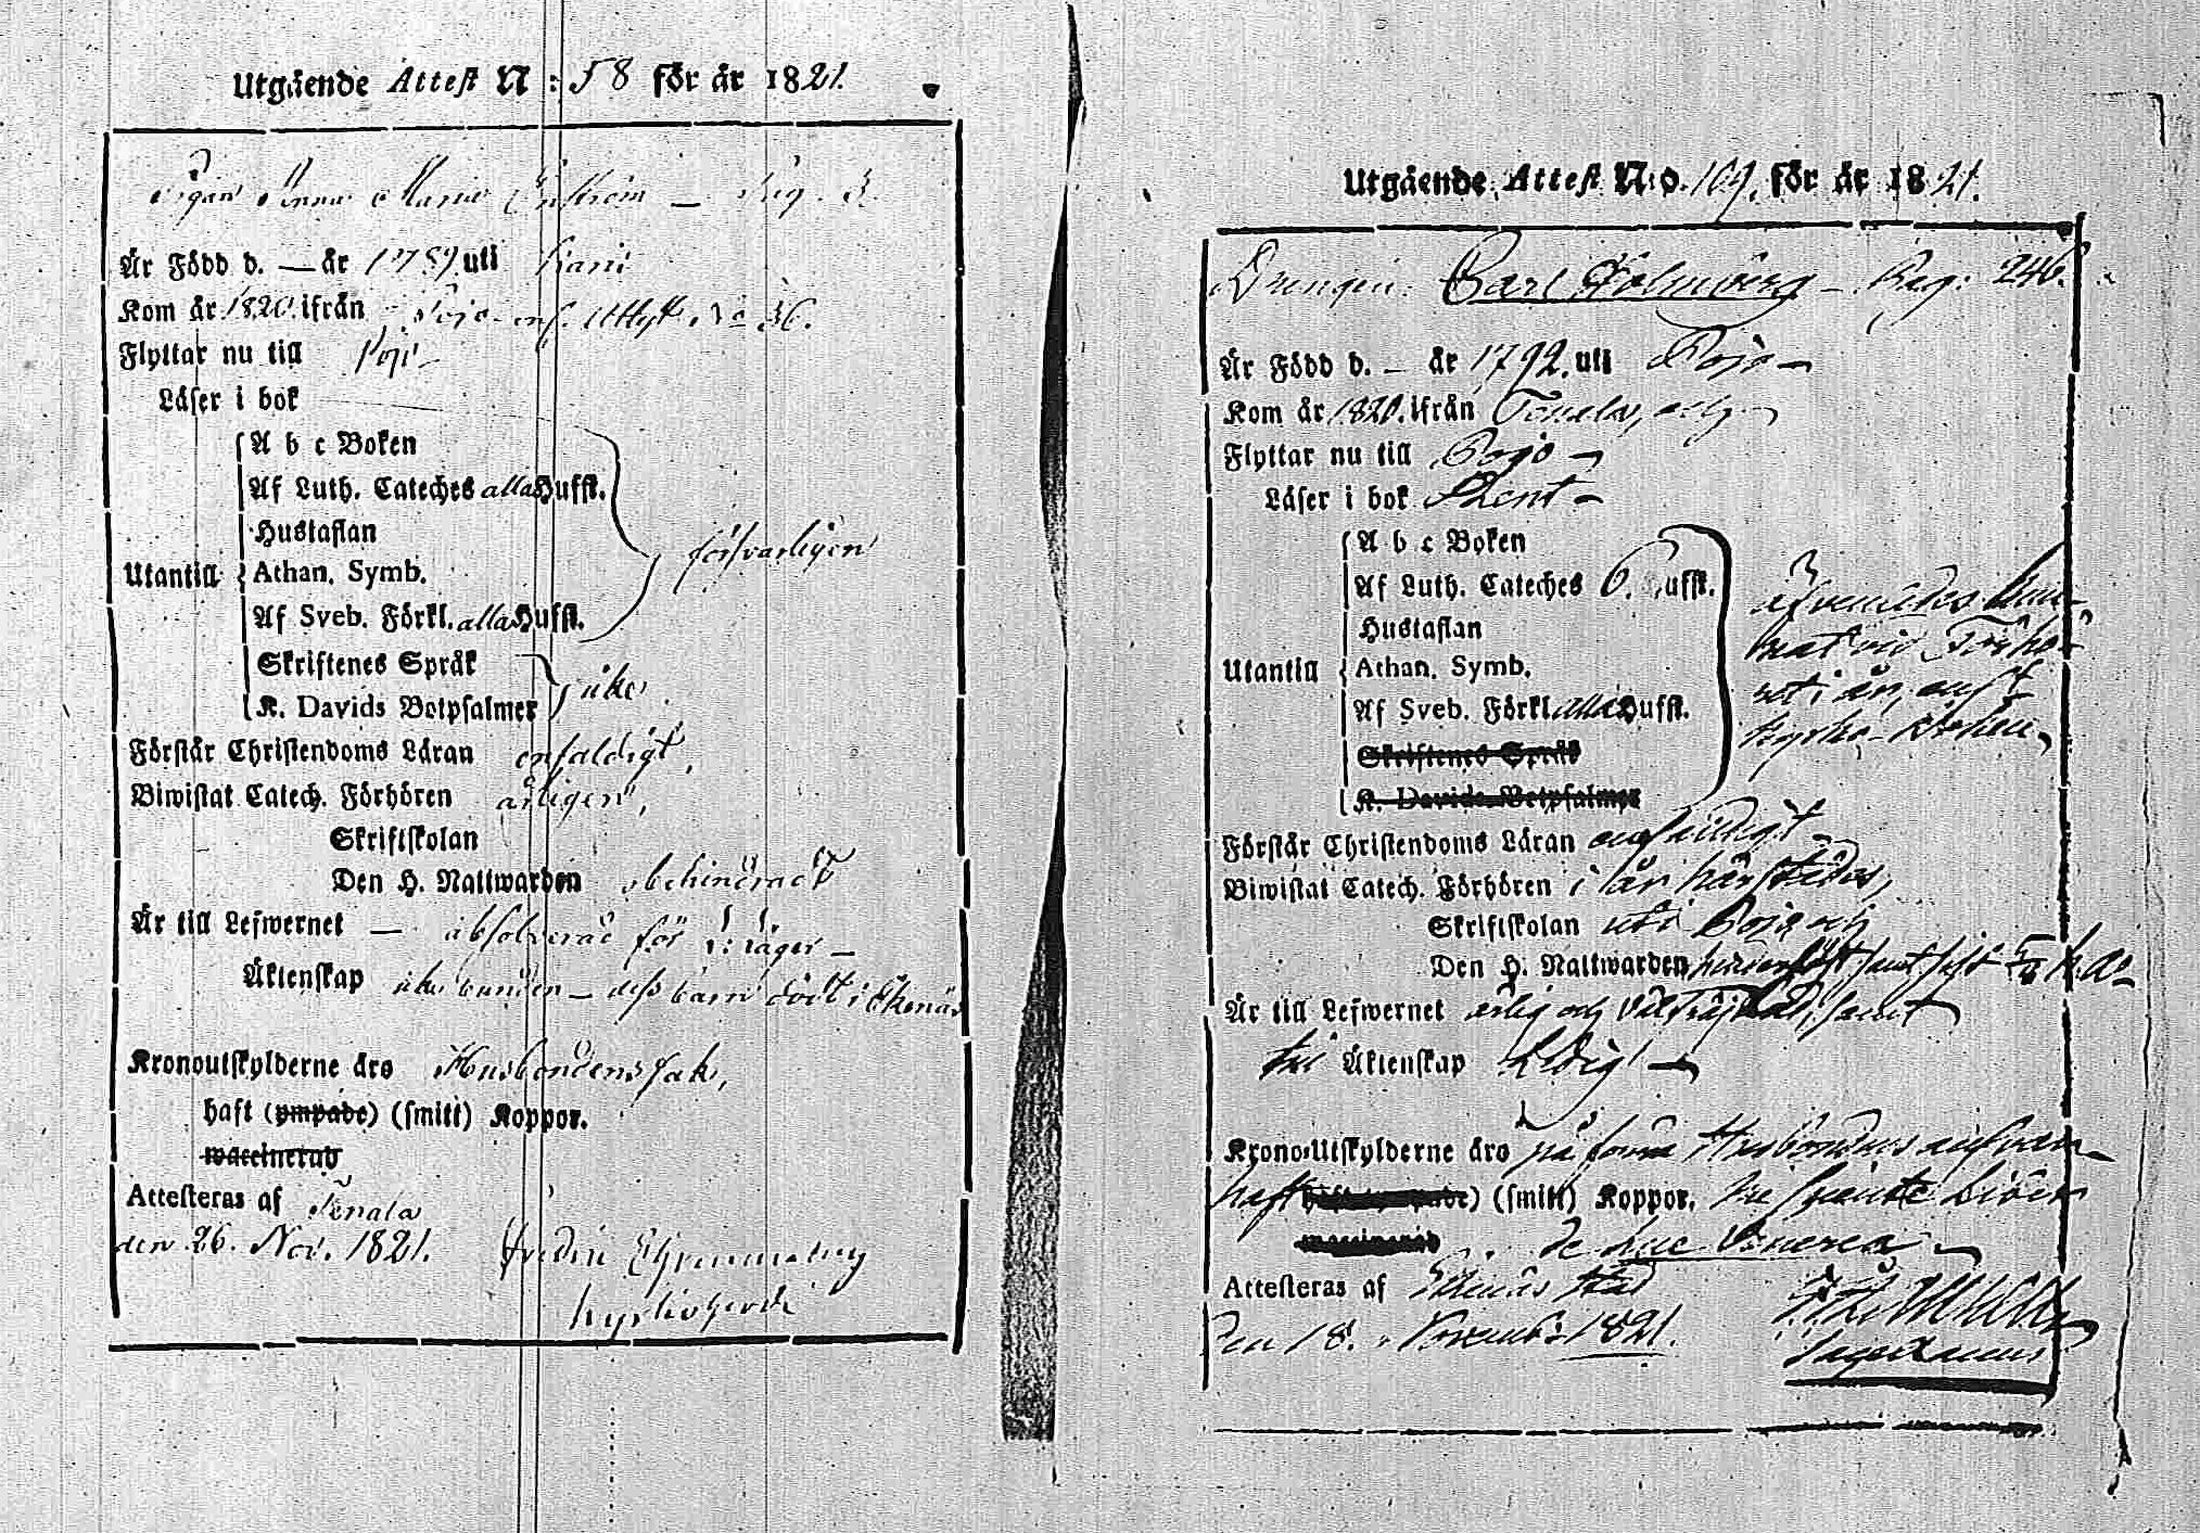 Utgående Attest N:58 för år 1821.
Pigan Anna Maria Enström — Pag. 3.
Är Född d. — år 1789 uti
Kom år 1820 ifrån Pojo enl. No 36.
Flyttar nu till Pojo
Läser i bok
A b c Boken
Af Luth. Cateches alla Hufst.
Hustaflan
försvarligen
Utantill Athan. Symb.
Af Sveb. Förkl. alla Hufst.
Skriftenes Språk
icke
K. Davids Botpsalmer
Förstår Christendoms Läran enfaldigt,
Biwistat Catech. Förhören årligen,
Skriftskolan
Den H. Nattwarden obehindradt
Är till Lefwernet — absolverad för L: läger —
Äktenskap icke bunden — dess barn dödt i Ekenäs
Kronoutskylderne äro Husbondens sak,
haft (ympade) (smitt) Koppor.
waccinerad
Attesteras af Tenala
den 26. Nov. 1821. Fredric Ehrenmalm
kyrkoherde
Utgående Attest No. 109. för år 1821.
Drängen Carl Holmberg — Pag: 246.
Är Född d. — år 1792. uti Pojo —
Kom år 1820. ifrån Tenala,
Flyttar nu till Pojo —
Läser i bok Rent —
A b c Boken
Af Luth. Cateches 6. Hufst.
Hustaflan
Utantill Athan. Symb.
Af Sveb. Förkl. alla Hufst.
Skriftenes Språk
K. Davids Botpsalmer
Förstår Christendoms Läran enfaldigt —
Biwistat Catech. Förhören i år härstädes,
Skriftskolan uti Pojo och
Den H. Nattwarden
Är till Lefwernet ärlig och välfräjdad, samt
till Äktenskap Ledig —
Krono-Utskylderne äro på förra Husbondens ansvar —
haft (smitt) Koppor.
de Lue Venerea —
Attesteras af Ekenäs Stad
Den 18. Novemb: 1821.